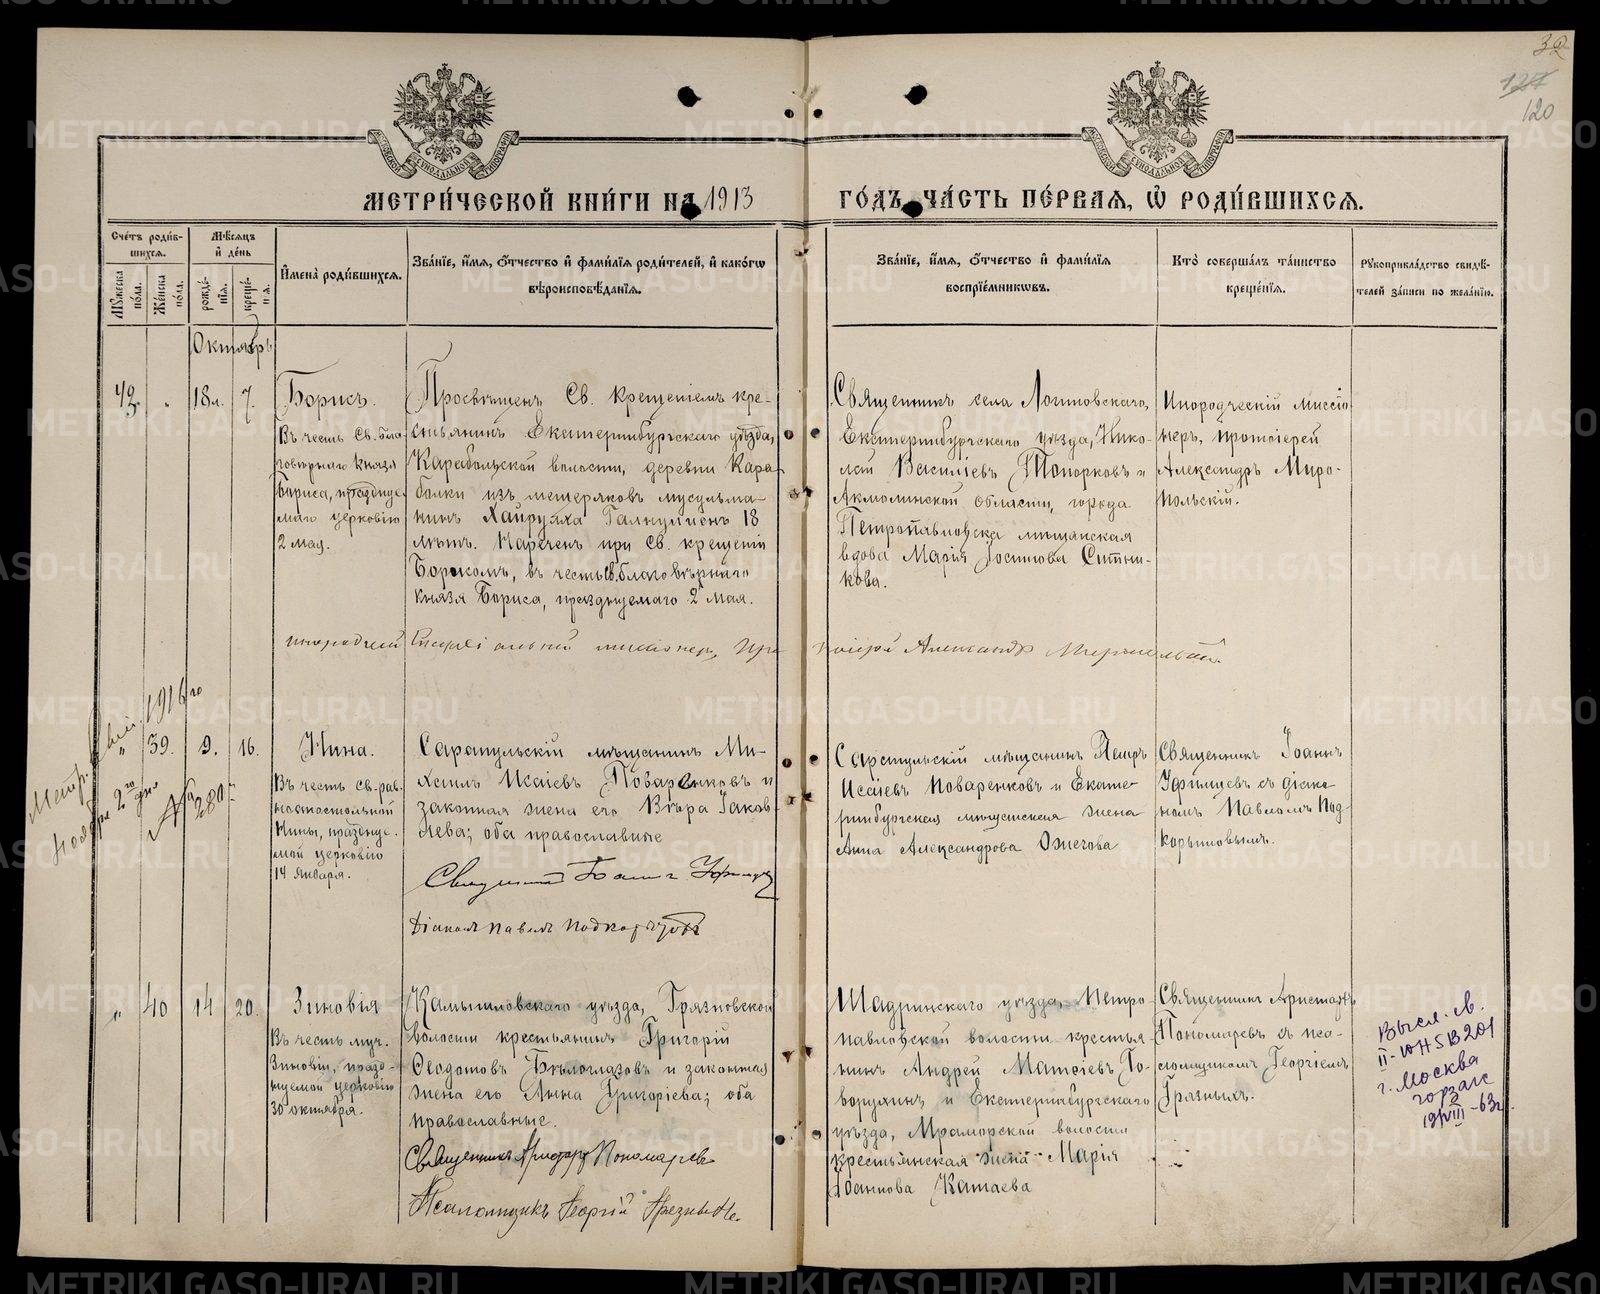 32
127
120
МЕТРИ́ЧЕСКОЙ КНИ́ГИ НА 1913 ГО́ДЪ, ЧА́СТЬ ПЕ́РВАЯ, Ѽ РОДИ́ВШИХСЯ.
Сче́тъ роди́вшихся.
Му́жеска по́ла.
Же́нска по́ла.
Мѣ́сяцъ и҆ де́нь
рожде́нїя.
креще́нїя.
И҆мена̀ роди́вшихся.
Зва́нїе, и҆́мя, ѻ҆́тчество и҆ фами́лїя роди́телей, и҆ како́гѡ
вѣроисповѣ́данїя.
Зва́нїе, и҆́мя, ѻ҆́тчество и҆ фами́лїя
воспрїе́мникѡвъ.
Кто̀ соверша́лъ та́инство
креще́нїя.
Рꙋкоприкла́дство свидѣ́-
телей за́писи по жела́нїю.
Октябрь
18л. 7.
Борисъ.
Въ честь Св. бла-
говѣрнаго Князя
Бориса, празднуе-
маго церковію
2 мая.
Просвѣщенъ Св. крещеніемъ кре-
стьянинъ Екатеринбургскаго уѣзда,
Карабольской волости, деревни Кара-
болки изъ мещеряковъ мусульма-
нинъ Хайрулла 18
лѣтъ. Нареченъ при Св. крещеніи
Борисомъ, въ честь Св. благовѣрнаго
Князя Бориса, празднуемаго 2 мая.
Священникъ села Логиновскаго,
Екатеринбургскаго уѣзда, Нико-
лай Васильевъ Топорковъ и
Акмолинской области, города
Петропавловска мѣщанская
вдова Марія Осипова Ситни-
кова.
Инородческій миссіо-
неръ, протоіерей
Александръ Миро-
польскій.
миссіонеръ, Протоіерей Александръ Миропольскій.
1916го
Ноября 2го дня
№ 280
" 39. 9. 16.
Нина.
Въ честь св. рав-
ноапостольной
Нины, празднуе-
мой церковію
14 января.
Сарапульскій мѣщанинъ Ми-
хаилъ Исаіевъ Поваренковъ и
законная жена его Вѣра Іаков-
лева; оба православные
Священникъ Іоаннъ Уфимцевъ
Діаконъ Павелъ Подкорытовъ
Сарапульскій мѣщанинъ Петръ
Исаіевъ Поваренковъ и Екате-
ринбургская мѣщанская жена
Анна Александрова Ожегова
Священникъ Іоаннъ
Уфимцевъ съ діако-
номъ Павломъ Под-
корытовымъ.
" 40 14 20.
Зиновія
Въ честь муч.
Зиновіи, празд-
нуемой церковію
30 октября.
Камышловскаго уѣзда, Грязновской
волости крестьянинъ Григорій
Ѳеодотовъ Бѣлоглазовъ и законная
жена его Анна Григоріева; оба
православные.
Священникъ Аристархъ Пономаревъ
Псаломщикъ Георгій Грязныхъ.
Шадринскаго уѣзда, Петро-
павловской волости крестья-
нинъ Андрей Матѳіевъ Го-
ворухинъ и Екатеринбургскаго
уѣзда, Мраморской волости
крестьянская жена Марія
Іоаннова Катаева
Священникъ Аристархъ
Пономаревъ съ пса-
ломщикомъ Георгіемъ
Грязныхъ.
Высл. св.
г. Москва
горзагс
19/VIII-63г.
METRIKI.GASO-URAL.RU